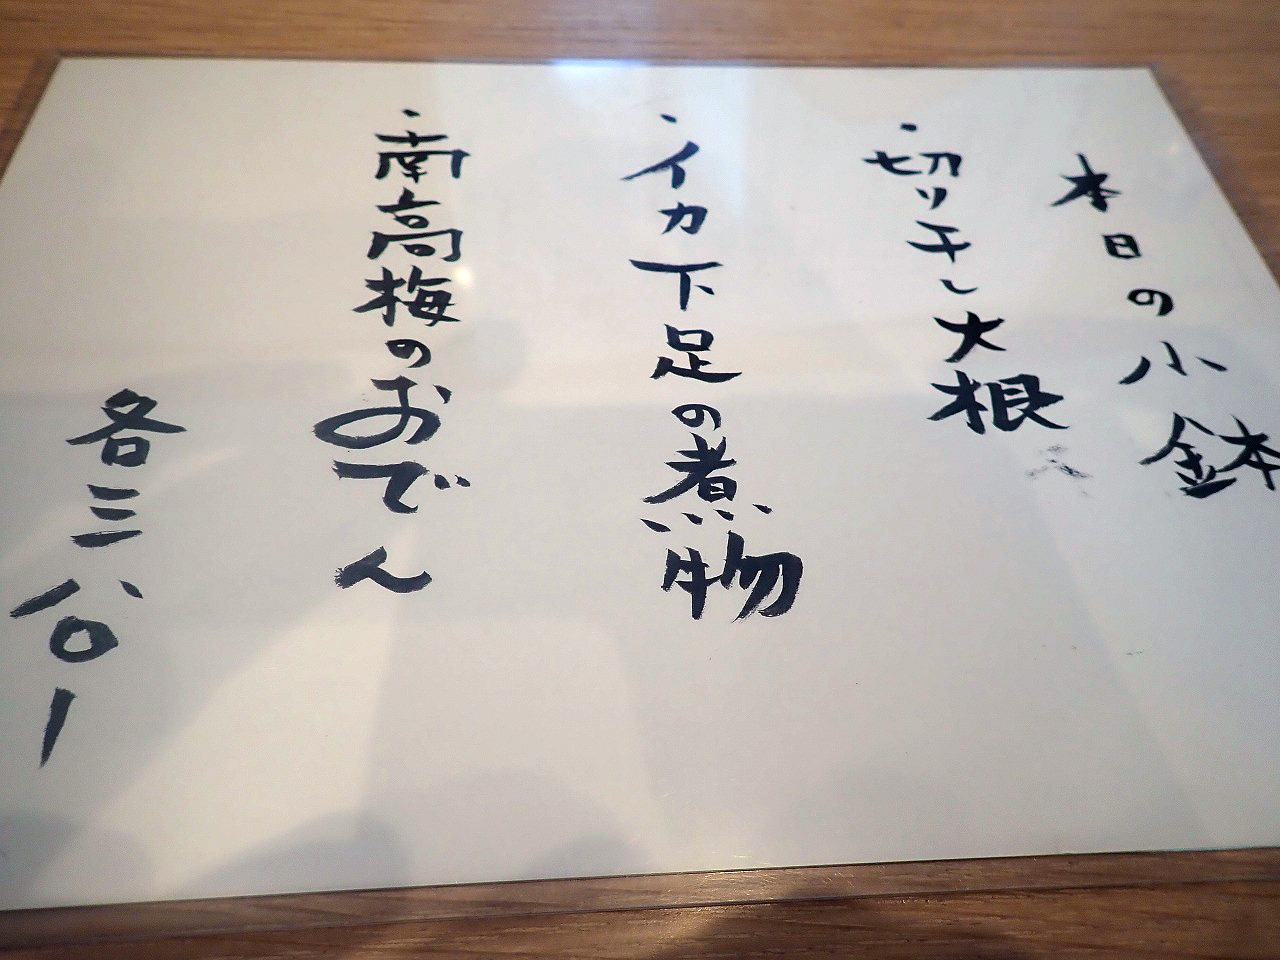 本日の小鉢
・切り干し大根
・イカ下足の煮物
・南高梅のおでん
各三八〇ー